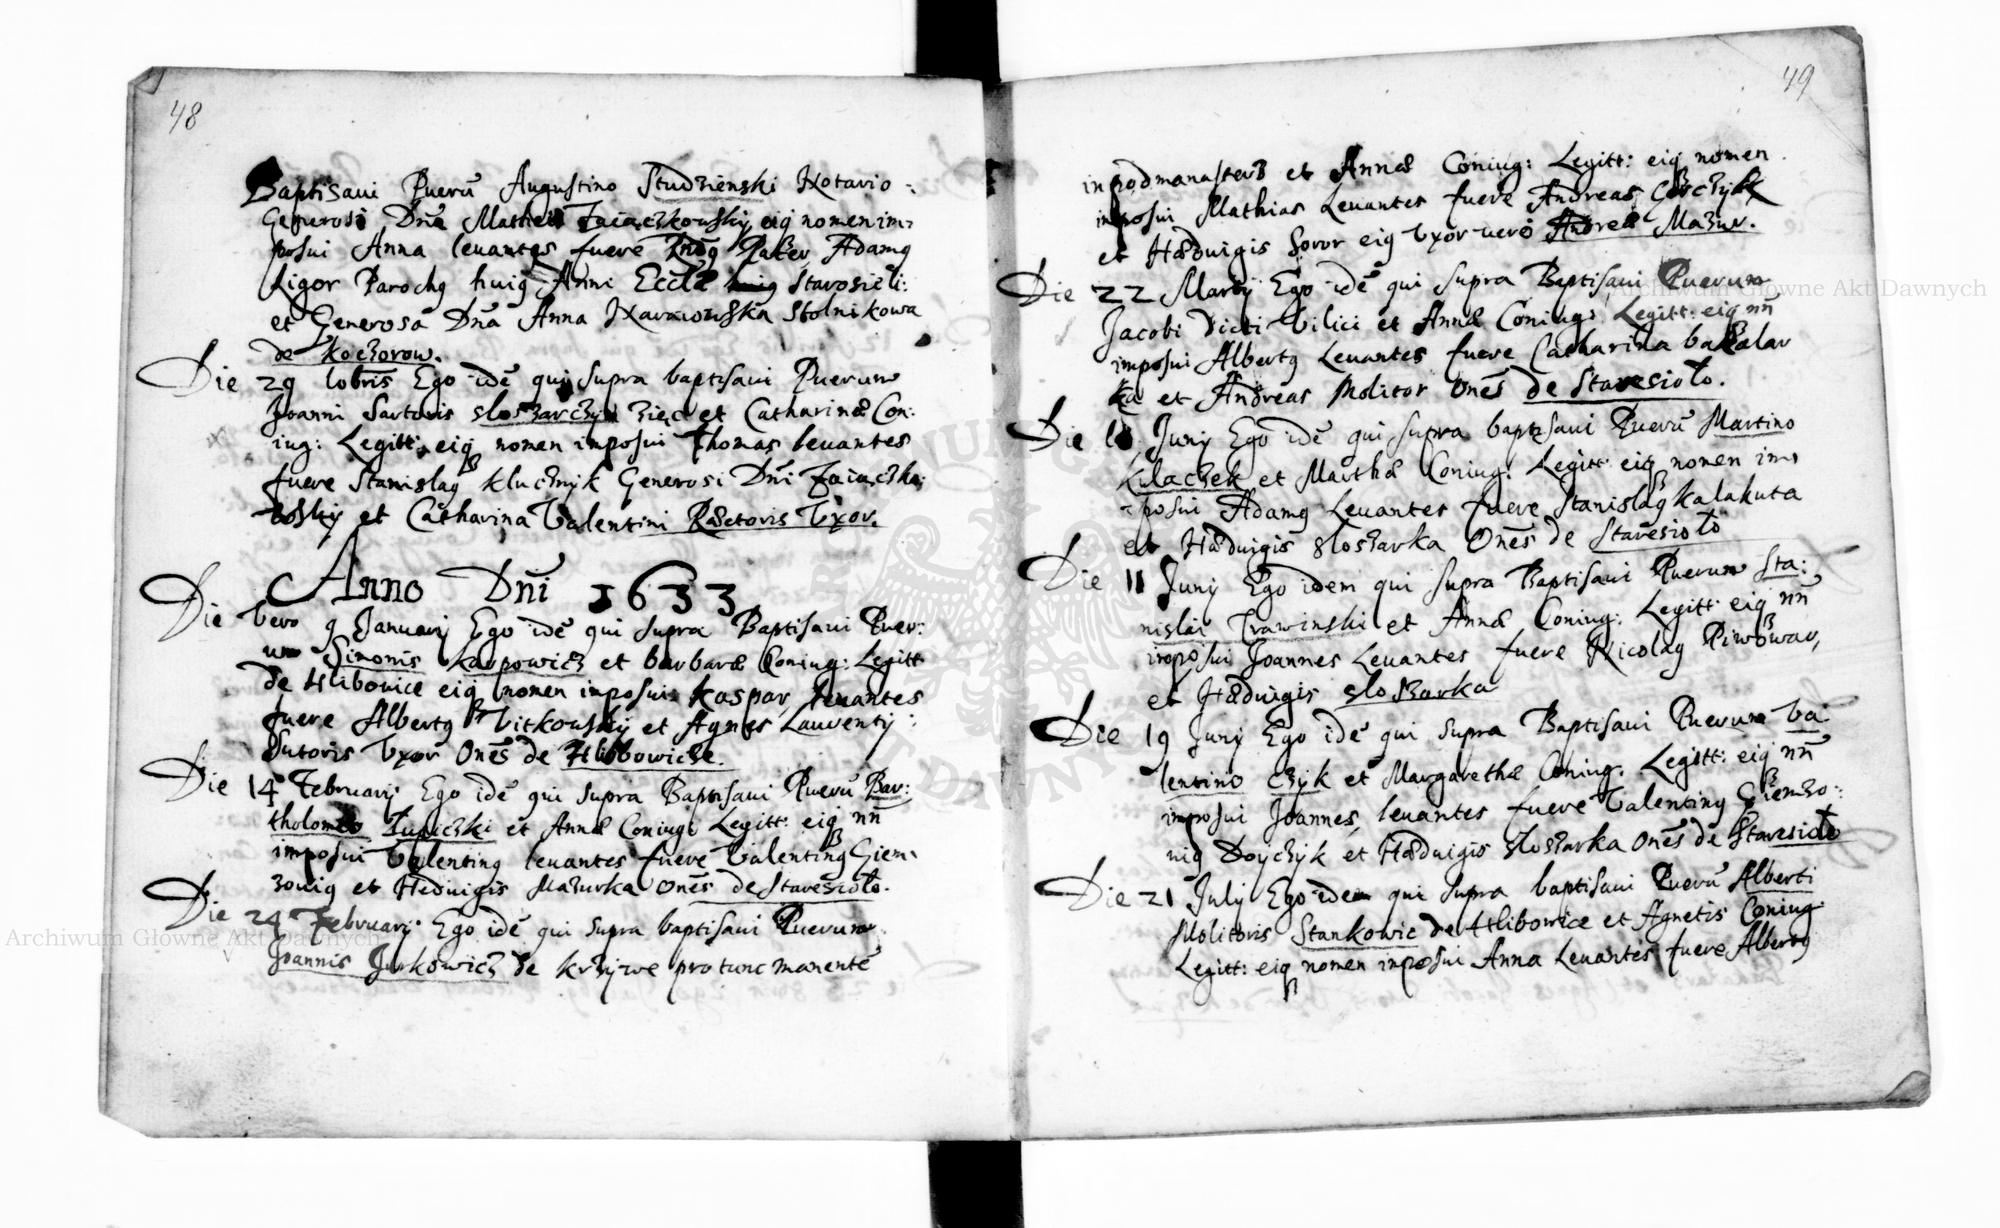 48
Baptisaui Puerũ Augustino Studzienski Notario
Generosi Dñi Matheis Zaiaczkowskij eiq nomen im
posui Anna leuantes fuere Pater Adamq
Ligor Parochq huiq Anni Eccłæ Starosieli:
et Generosa Dña Anna Stolnikowa
de koczorow.
Die 29 10bris Ego idẽ qui supra baptisaui Puerum
Joanni Sartoris zięc et Catharinæ Con:
iug: Legitt: eiq nomen imposui Thomas leuantes
fuere Stanislaq klucznyk Generosi Dñi Zaiączko
wskij et Catharina Valentini Rectoris Vxor.
Anno Dñi 1633
Die Vero 9 Januarij Ego idẽ qui supra Baptisaui Puer:
um Simonis karpowicz et barbaræ Coniug: Legitt
de Hlibowice eiq nomen imposui kaspar, leuantes
fuere Albertq Vitkowskij et Agnes Laurentij
Sutoris Vxor Onẽs de Hlibowicze.
Die 14 Februarij Ego idẽ qui supra Baptisaui Puerũ Bar:
tholomeo Zupiczki et Annæ Coniug: Legitt: eiq nñ
imposui Valentinq leuantes fuere Valentinq Giem
zouiq et Heduigis Mazurka onẽs de Staresioło.
Die 24 Februarij Ego idẽ qui supra baptisaui Puerum
Joannis Jurkowicz de krzywe pro tunc manentẽ
49
in podmanasterz et Annæ Coniug: Legitt: eiq nomen
imposui Mathias Leuantes fuere Andreas
et Hæduigis Soror eiq Vxor uero Andreæ Mazur.
Die 22 Martij Ego idẽ qui supra Baptisaui Puerum
Jacobi dicti Vilici et Annæ Coniug: Legitt: eiq nñ
imposui Albertq Leuantes fuere Catharina bakalar
ka et Andreas Molitor Onẽs de Staresioło.
Die Junij Ego idẽ qui supra baptisaui Puerũ Martino
kilaczek et Marthæ Coniug: Legitt: eiq nomen im
posui Adamq Leuantes fuere Stanislaq kalakuta
et Hæduigis slosarka Onẽs de Staresioło
Die 11 Junij Ego idem qui supra Baptisaui Puerum Sta:
nislai Trawinski et Annæ Coniug: Legitt: eiq nñ
imposui Joannes Leuantes fuere Nicolaq Piwowar,
et Hæduigis slosarka
Die 19 Junij Ego idẽ qui supra Baptisaui Puerum Va:
lentino czyk et Margarethæ Coniug: Legitt: eiq nñ
imposui Joannes, leuantes fuere Valentinq Giemzo:
uiq et Hæduigis slosarka Onẽs de Staresioło
Die 21 Julij Ego idem qui supra baptisaui Puerũ Alberti
Molitoris Stankowic de Hlibowice et Agnetis Coniug:
Legitt: eiq nomen inposui Anna Leuantes fuere Albertq
Archiwum Główne Akt Dawnych
Archiwum Główne Akt Dawnych